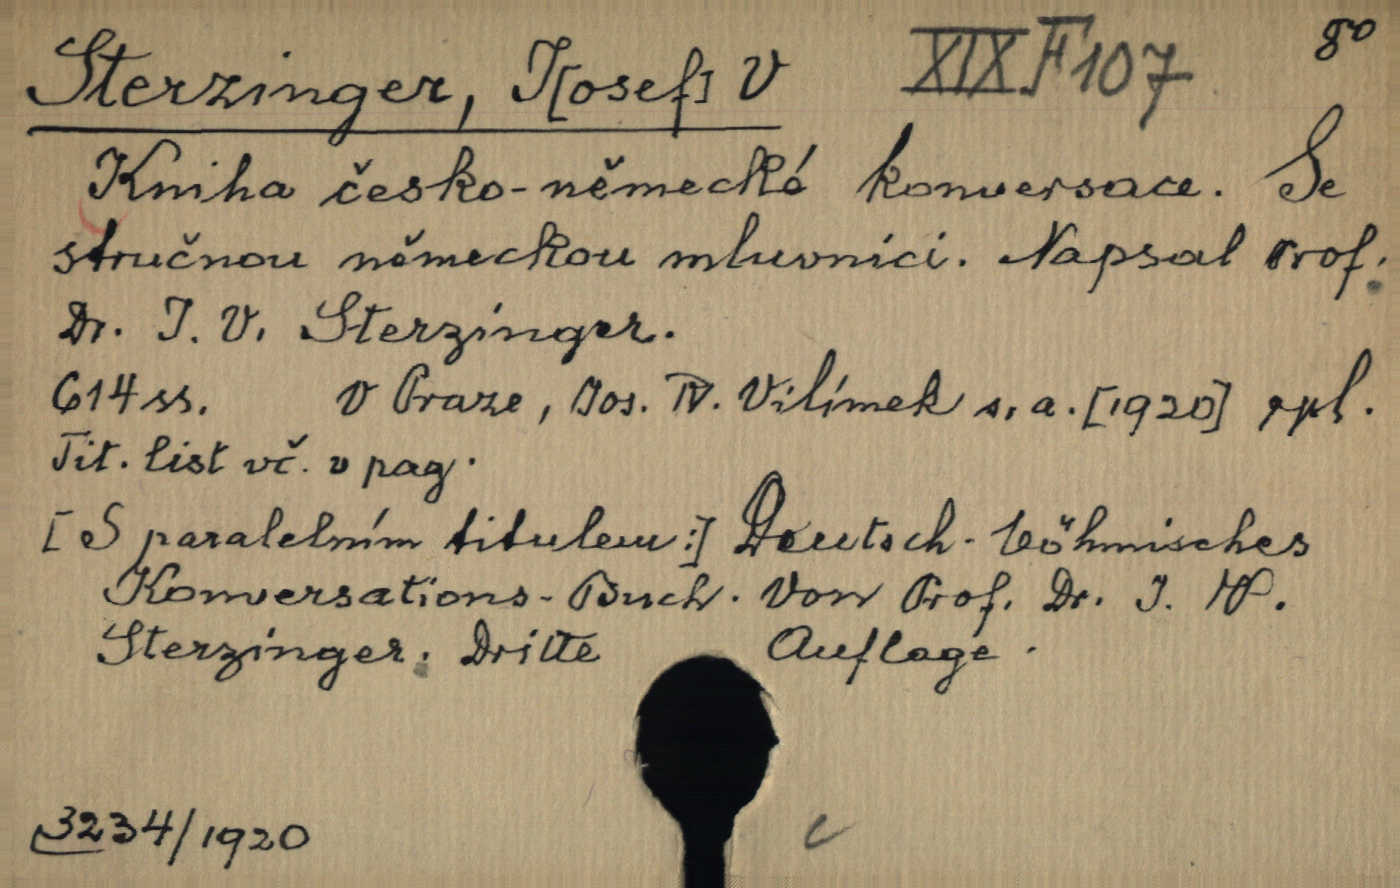 Sterzinger, J[osef] V XIX F 107 8°
Kniha česko-německé konversace. Se
stručnou německou mluvnicí. Napsal Prof.
Dr. J. V. Sterzinger.
614 ss. V Praze, Jos. R. Vilímek s. a. [1920] rpl.
Tit. list vč. v pag.
[S paralelním titulem:] Deutsch-böhmisches
Konversations-Buch. Von Prof. Dr. J. W.
Sterzinger. Dritte Auflage.
3234/1920